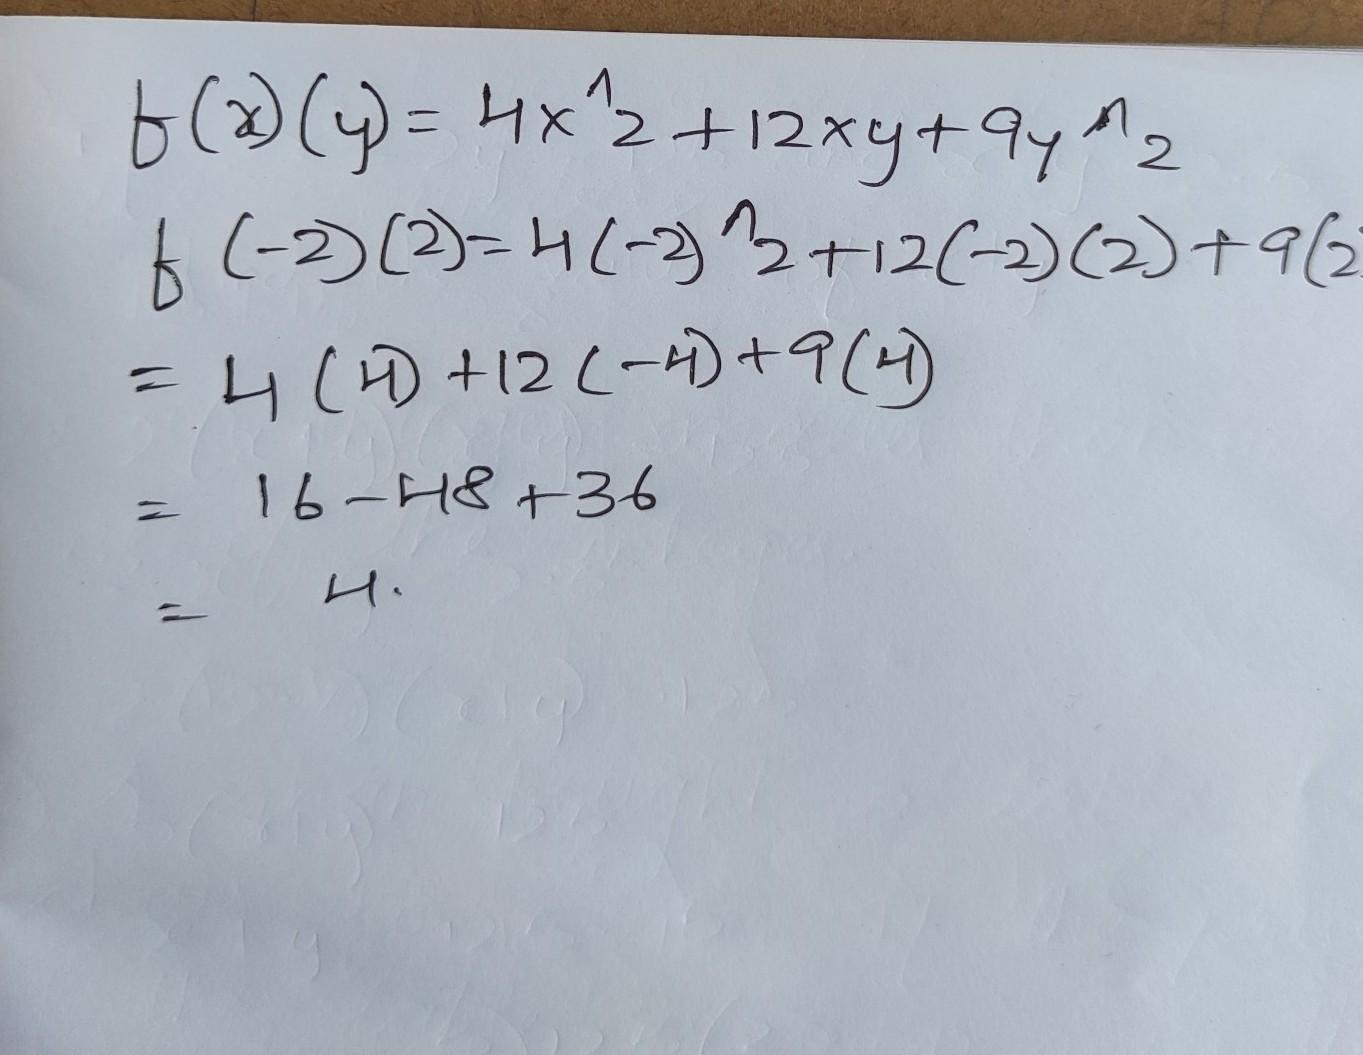 f(x)(y)= 4x^2+12xy+9y^2
f(-2)(2)=4(-2)^2+12(-2)(2)+9(2
= 4(4)+12(-4)+9(4)
= 16-48+36
= 4.